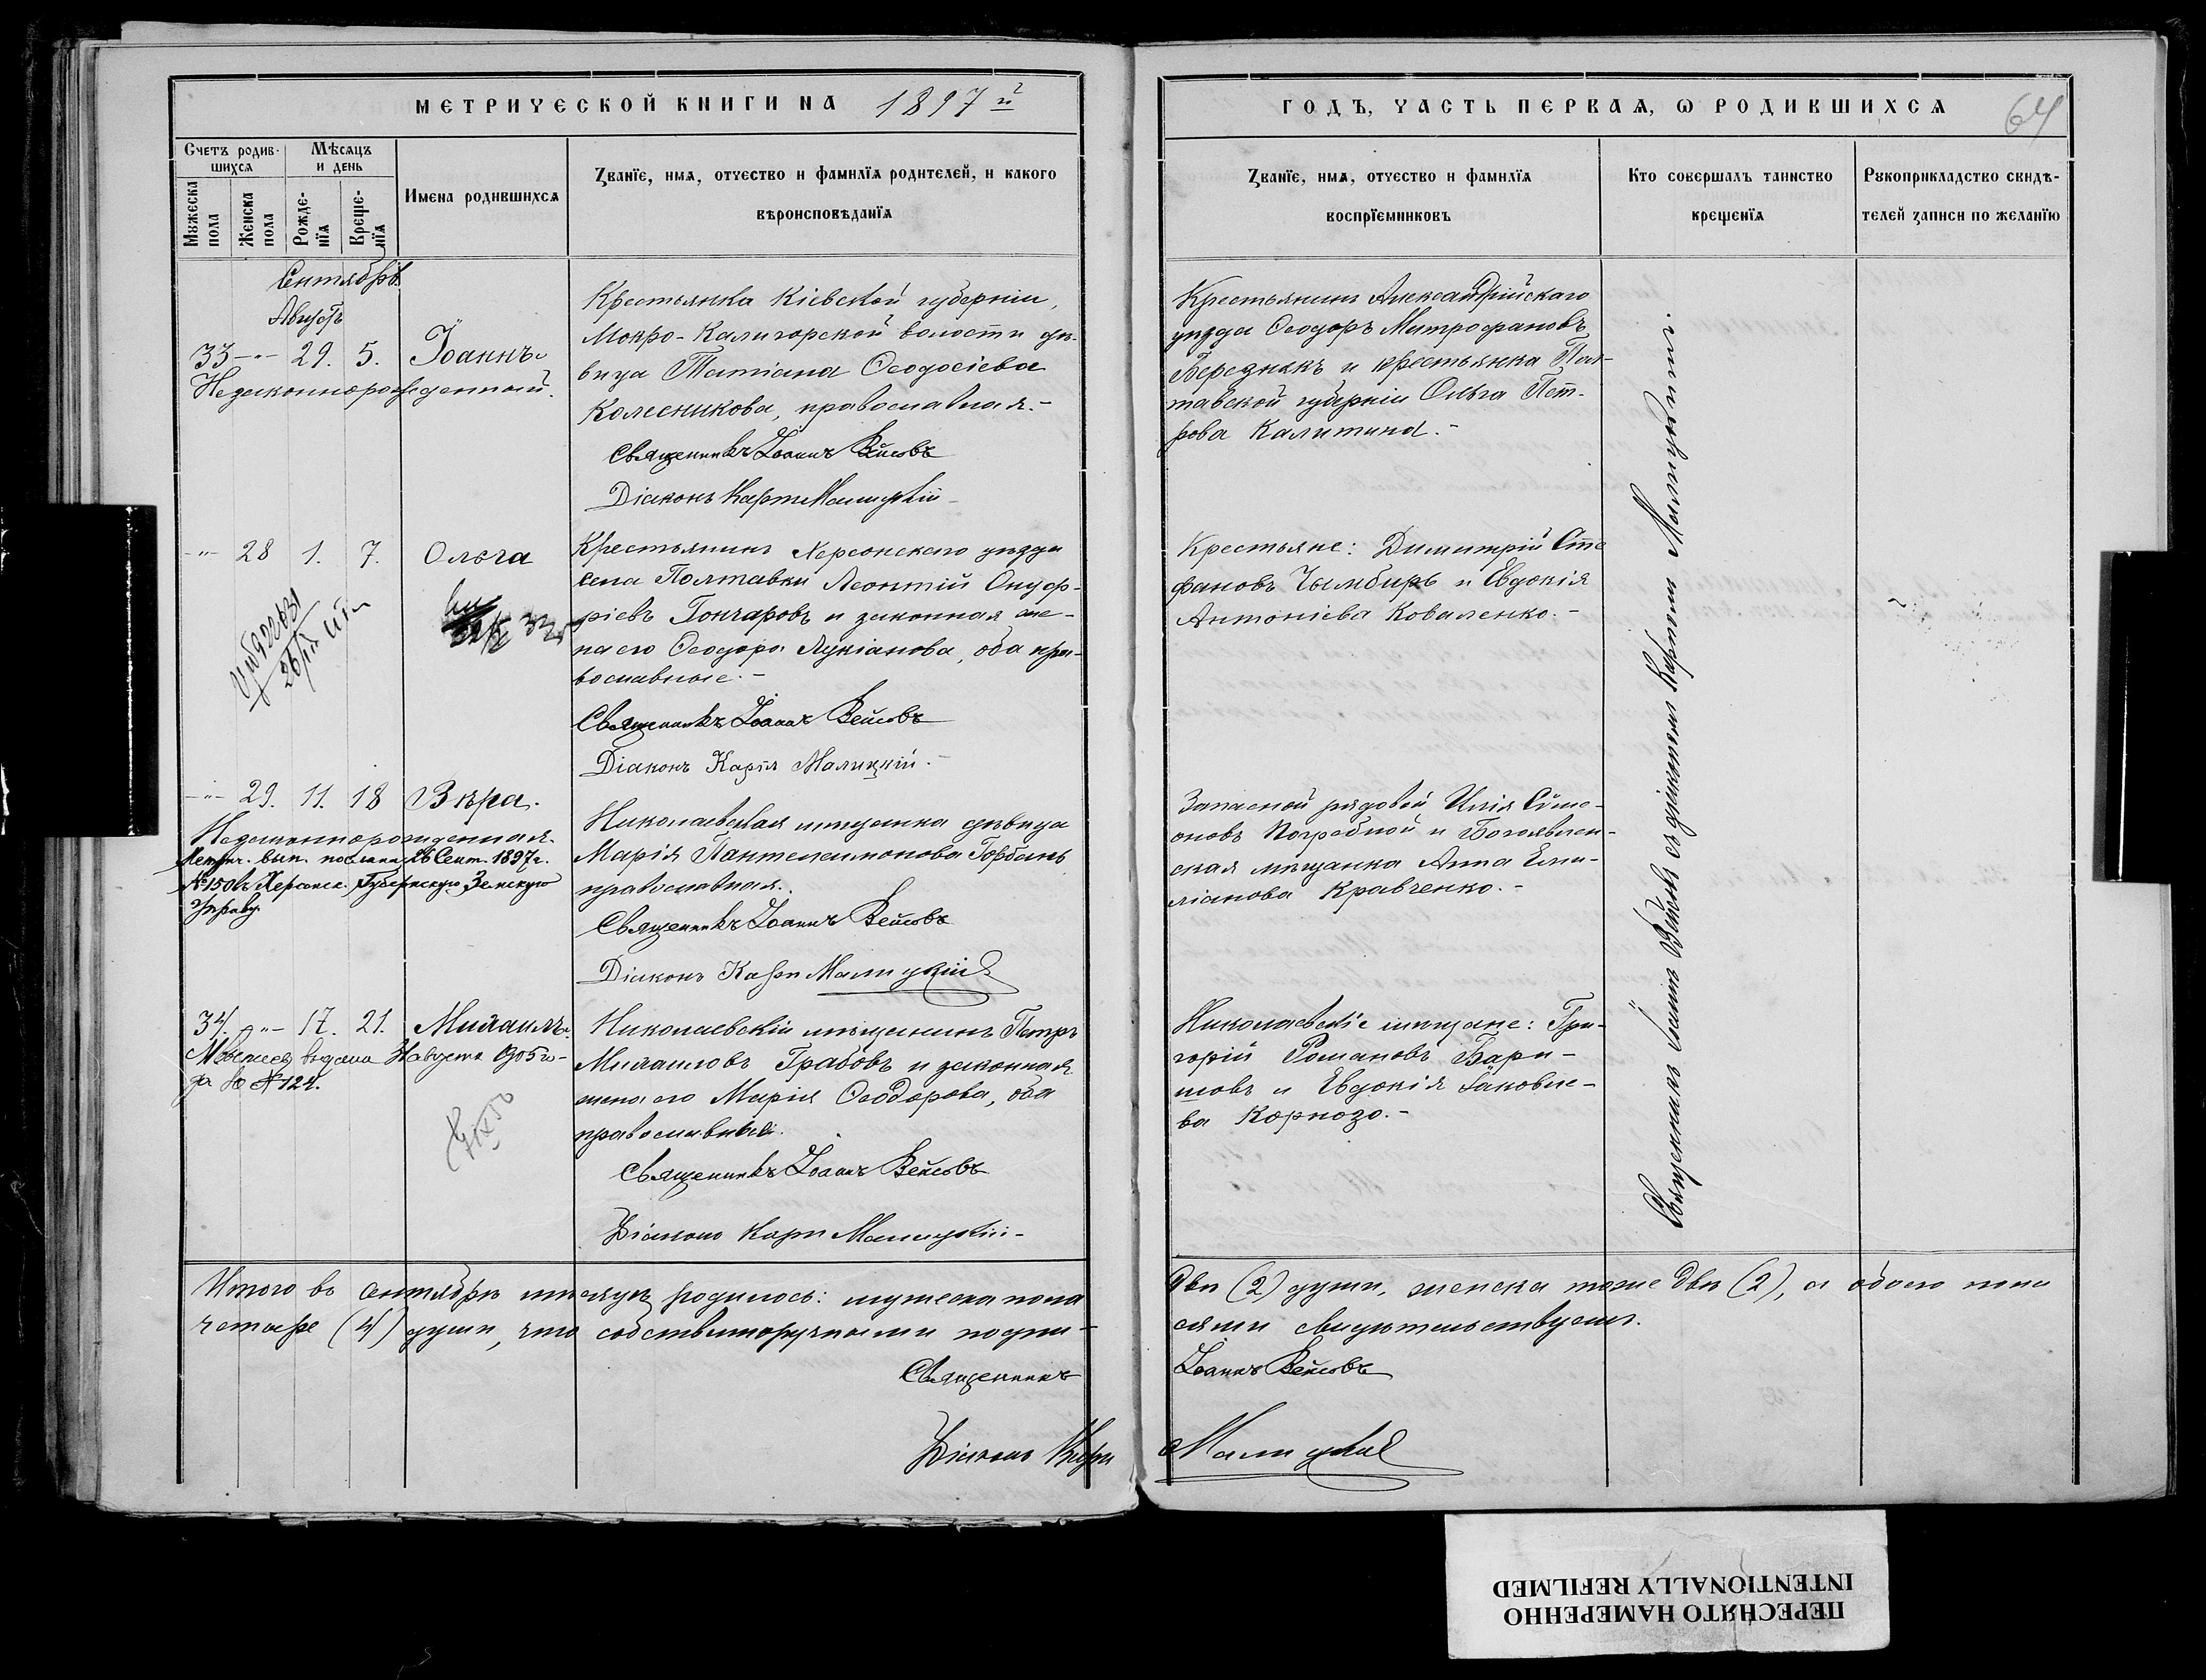 МЕТРИЧЕСКОЙ КНИГИ НА 1897 й
Счетъ родив-
шихся
Мѣсяцъ
и день
Мужеска
пола
Женска
пола
Рожде-
нія
Креще-
нія
Имена родившихся
Званіе, имя, отчество и фамилія родителей, и какого
вѣроисповѣданія
Сентябрь.
Августъ
33 -"- 29. 5. Іоаннъ.
Незаконнорожденный.
Крестьянка Кіевской губерніи,
Мокро-Калигорской волости дѣ-
вица Татіана Ѳеодосіева
Колесникова, православная.-
Священникъ Іоаннъ Вейсовъ
Діаконъ Карпъ Малицкій-
-"- 28 1. 7. Ольга
Крестьянинъ Херсонскаго уѣзда
села Полтавки Леонтій Онуф-
ріевъ Гончаровъ и законная же-
на его Ѳеодора Лукіанова, оба пра-
вославные.-
Священникъ Іоаннъ Вейсовъ
Діаконъ Карпъ Малицкій.-
-"- 29. 11. 18 Вѣра.
Незаконнорожденная.
Метрич. вып. послана 26 Сент. 1897г.
№150 въ Херсонск. Губернскую Земскую
Управу.
Николаевская мѣщанка дѣвица
Марія Пантелеимонова Горбань
православная.
Священникъ Іоаннъ Вейсовъ
Діаконъ Карпъ Малицкій
34. -"- 17. 21. Михаилъ.
выдана 3 августа 905 го-
да за №124.
Николаевскій мѣщанинъ Петръ
Михаиловъ Грабовъ и законная
жена его Марія Ѳеодорова, оба
православные.
Священникъ Іоаннъ Вейсовъ
Діаконъ Карпъ Малицкій-
Итого въ сентябрѣ мѣсяцѣ родилось: мужеска пола
четыре (4) души, что собственноручными подпи-
Священникъ
Діаконъ Карпъ
ГОДЪ, ЧАСТЬ ПЕРВАЯ, О РОДИВШИХСЯ
64
Званіе, имя, отчество и фамилія
воспріемниковъ
Кто совершалъ таинство
крещенія
Рукоприкладство свидѣ-
телей записи по желанію
Крестьянинъ Александрійскаго
уѣзда Ѳеодоръ Митрофановъ
Береднякъ и крестьянка Пол-
тавской губерніи Ольга Пет-
рова Калитина.-
Крестьяне: Димитрій Сте
фановъ Чымбиръ и Евдокія
Антоніева Коваленко.-
Запасной рядовой Илія Сѵме-
оновъ Погребной и Богоявлен-
ская мѣщанка Анна Еми-
ліанова Кравченко.-
Николаевскіе мѣщане: Гри-
горій Романовъ Бари-
шовъ и Евдокія Іаковле-
ва Корнозо.-
Священникъ Іоаннъ Вейсовъ съ діакономъ Карпомъ Малицкимъ.
двѣ (2) души, женска тоже двѣ (2), а обоего пола
сями свидѣтельствуемъ.
Іоаннъ Вейсовъ
Малицкій
ПЕРЕСНЯТО НАМЕРЕННО
INTENTIONALLY REFILMED